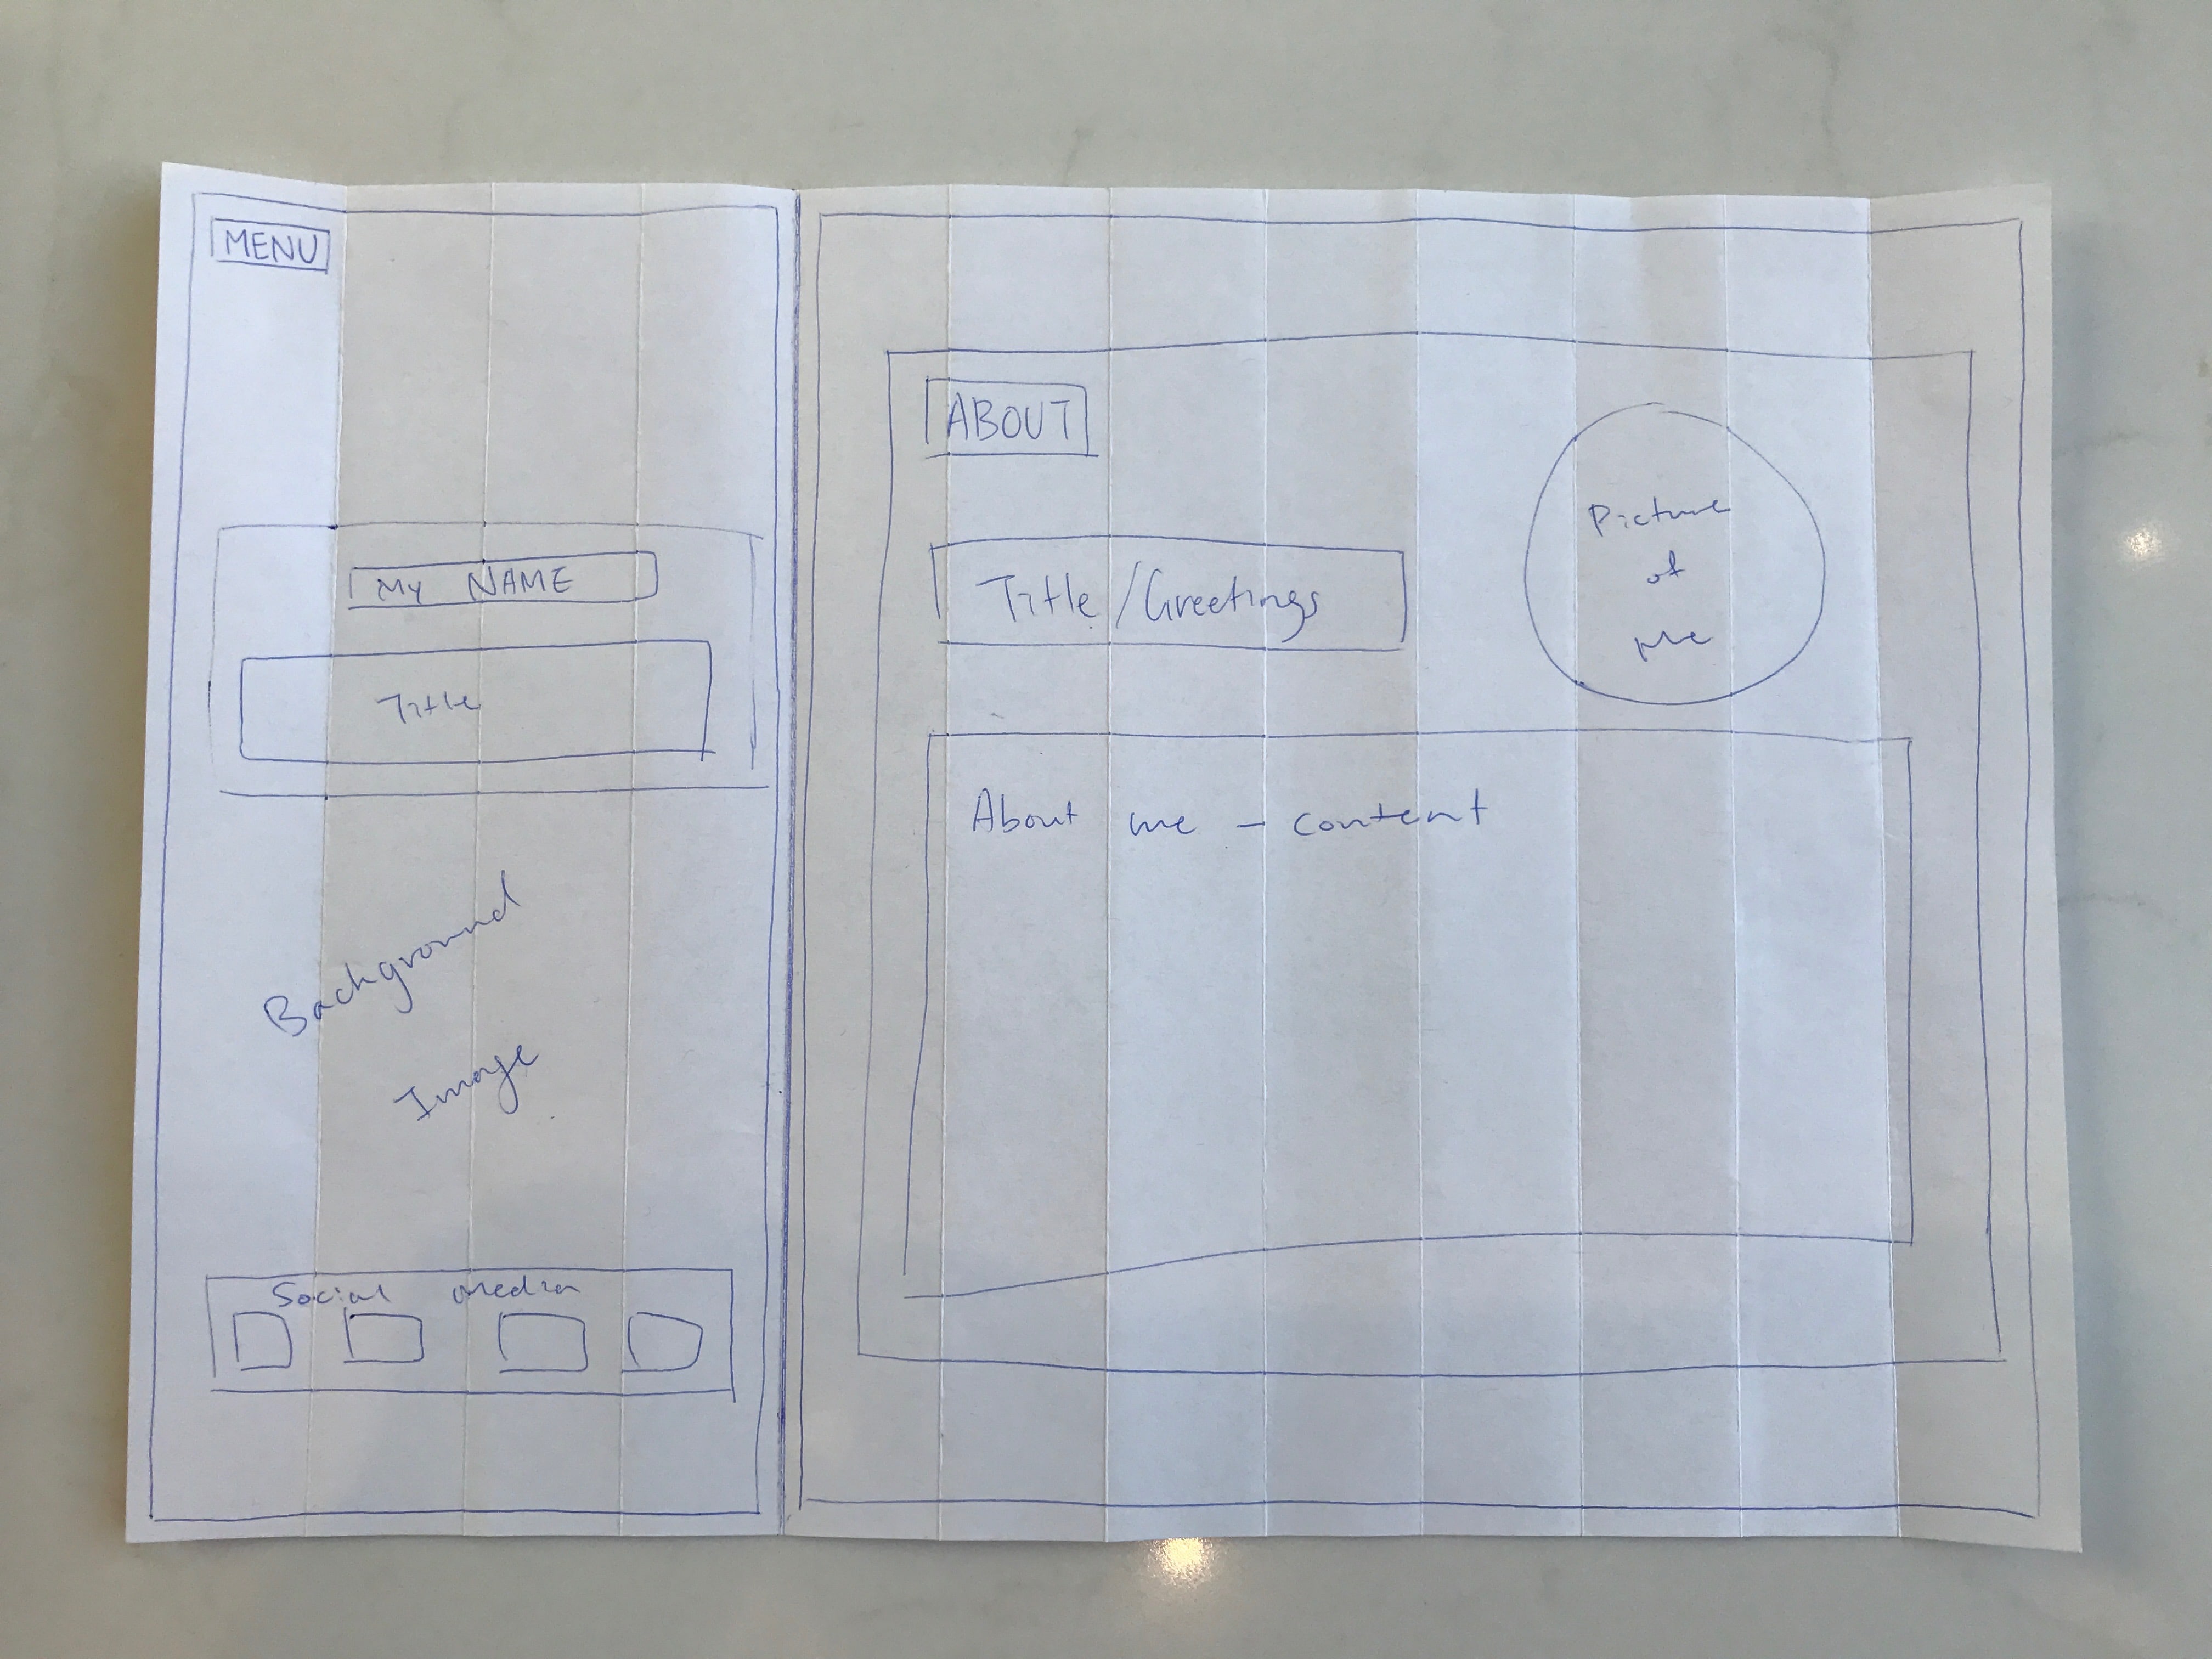 MENU
MY NAME
Title
Background
Image
Social Media
ABOUT
Title/Greetings
Picture
of
me
About me - content